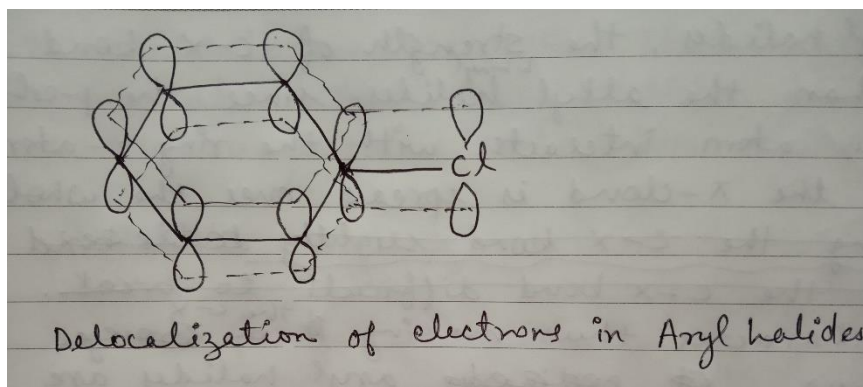 Cl
Delocalization of electrons in Aryl halides